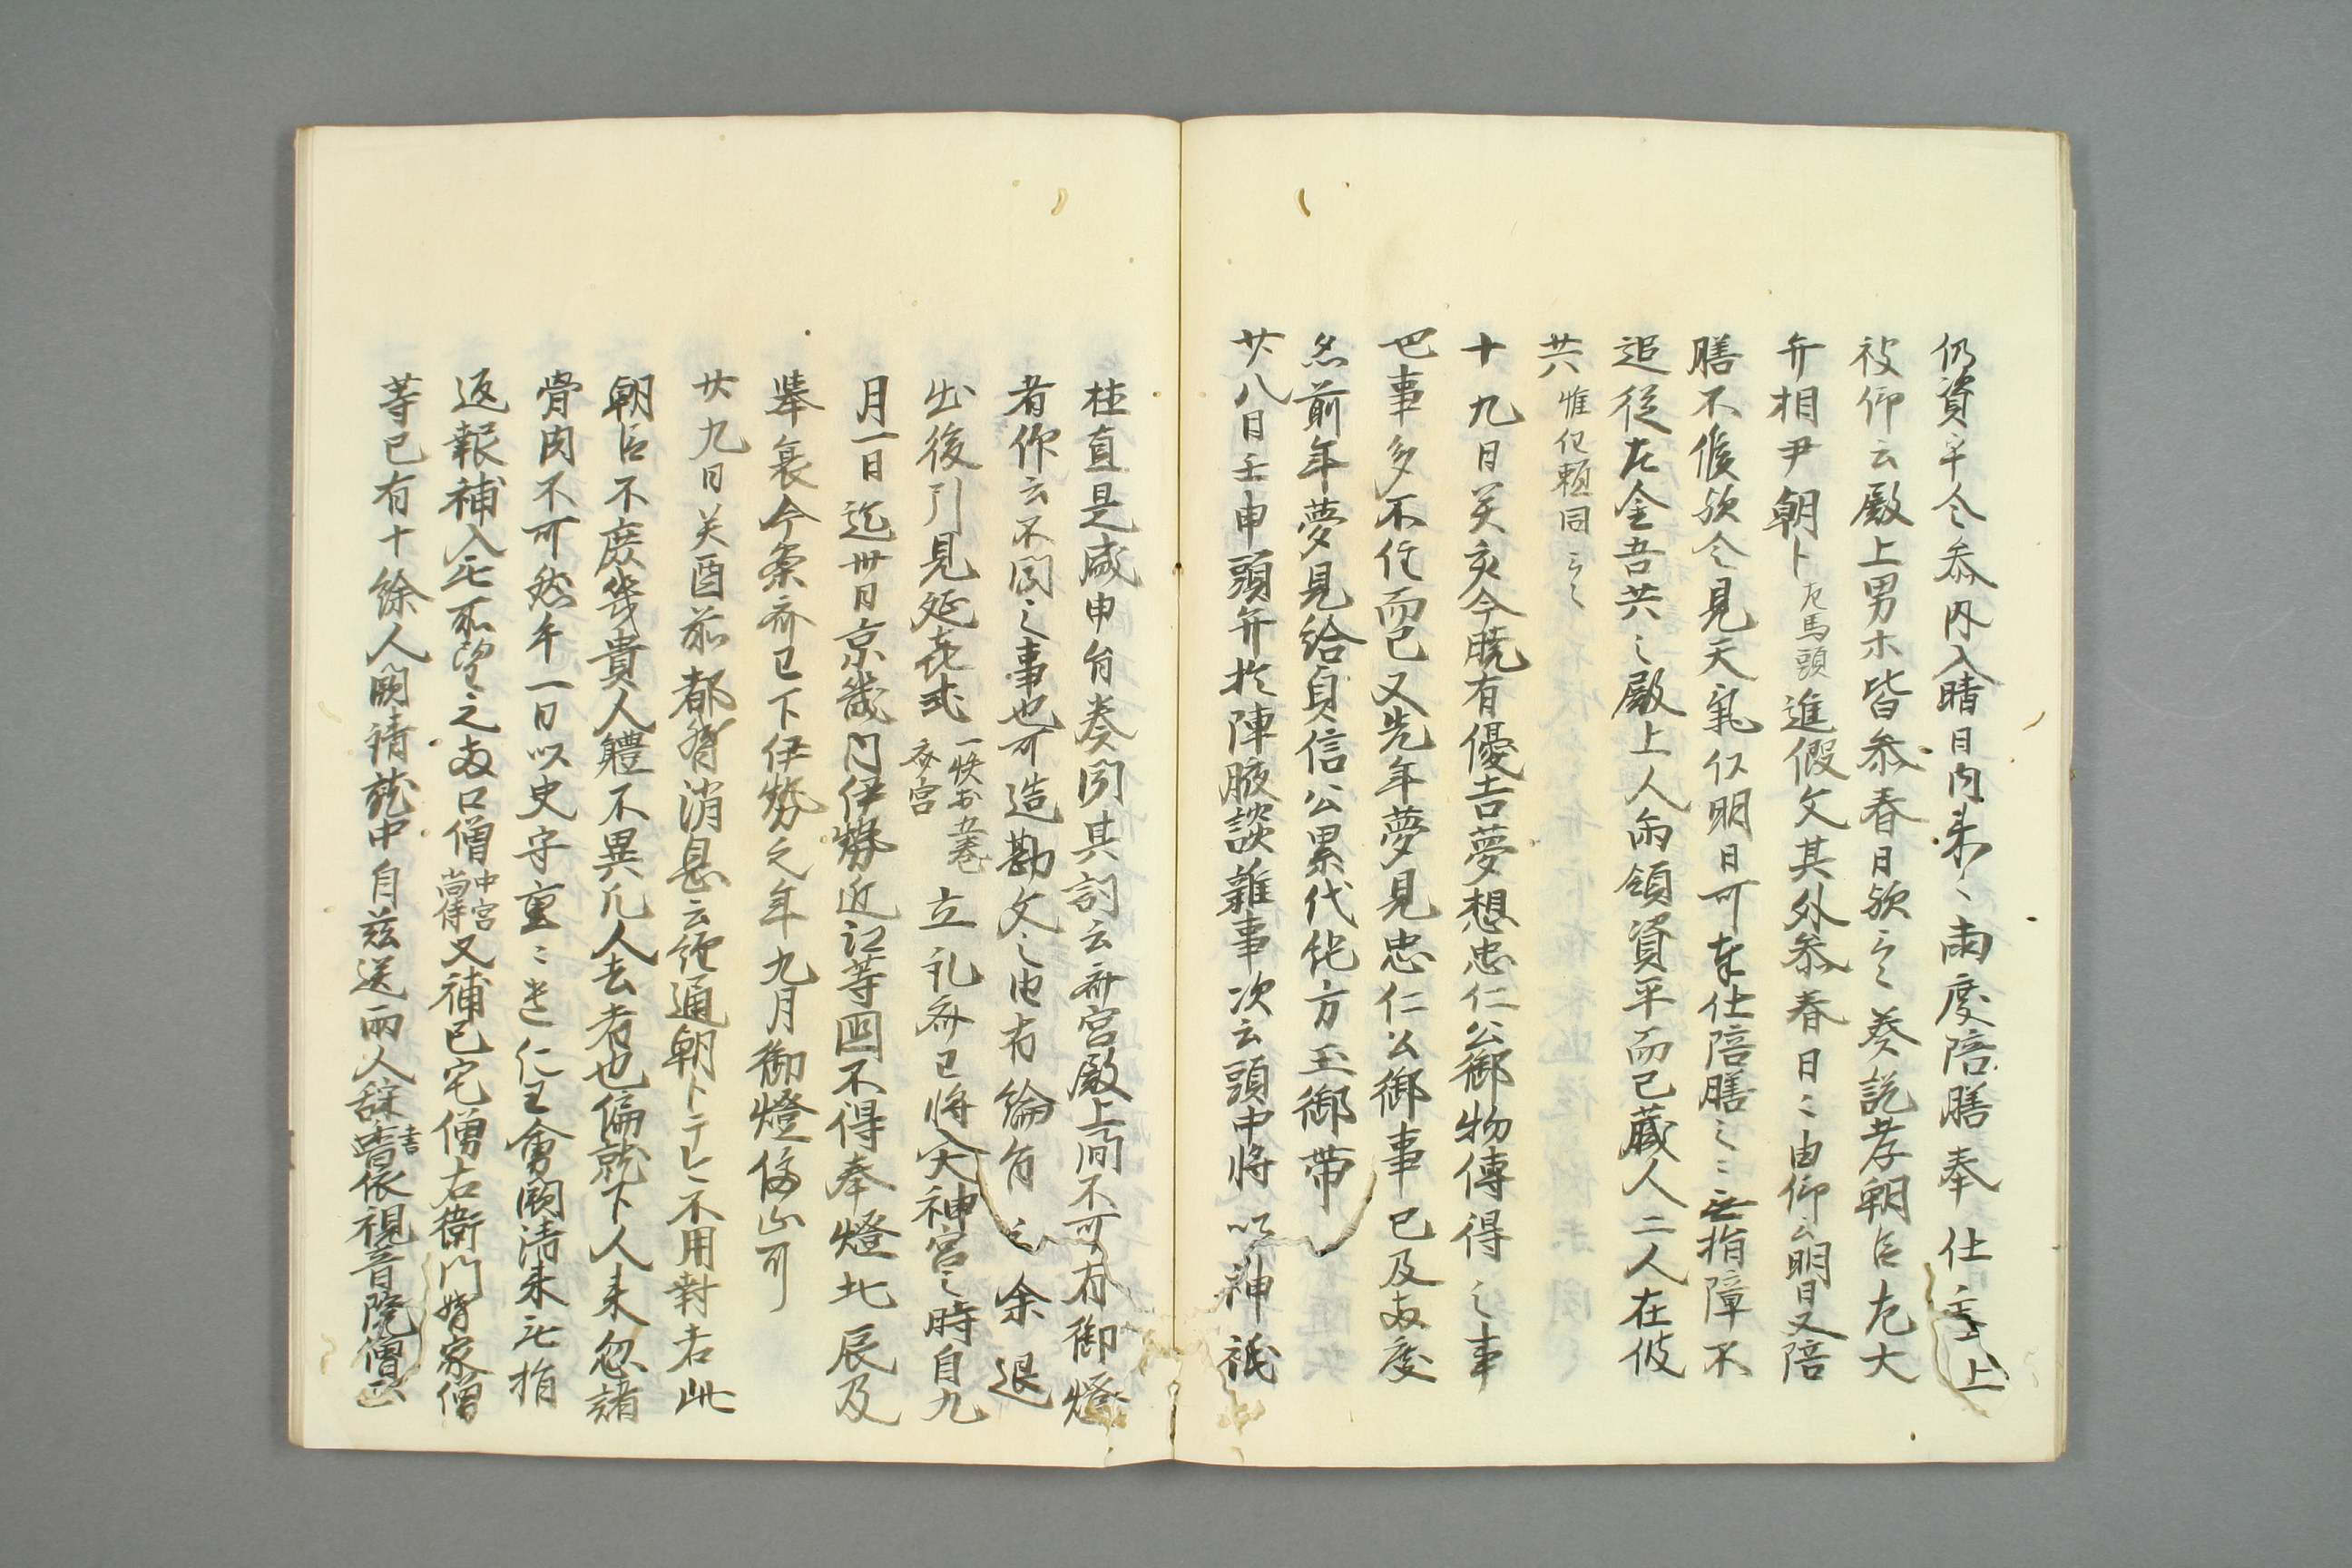 仍資平令参内入晴日内来〻兩度陪膳奉仕主上
被仰云殿上男木皆参春日欤云〻葵説孝朝臣左大
弁相尹朝卜左馬頭進假文其外参春日〻由仰云明日又陪
膳不候欤令見天氣仅明日可奉仕陪膳之〻無指障不
追従左金吾共之殿上人兩領資平而已蔵人二人在彼
共惟任頼同云〻
十九日癸亥今暁有優吉夢想忠仁公御物傳得之事
也事多不任而已又先年夢見忠仁公御事已及両度
然前年夢見給貞信公累代佗方玉御帯
廿八日壬申頭弁於陣腋談雜事次云頭中将以神祇
桂直是咸申旨奏聞其詞云斎宮殿上間不可有御燈
者仰云不聞之事也可造勘文之由有綸旨云〻余退
出後引見延㐂式一帙於五巻斎宮立礼斎已将入大神宮之時自九
月一日迄卅日京畿内伊勢近江等國不得奉燈北辰及
挙哀今案斎已下伊勢之年九月御燈停止可
廿九日癸酉前都督消息云絶通朝卜不用對者此
朝臣不庶幾貴人軆不異凡人去者也偏就下人来忽諸
骨肉不可然午一日以史守重〻迷仁王會闕請来無指
返報補入無所望之両口僧中宮尚侍又補已宅僧右衛門督家僧
等已有十餘人闕請就中自茲送兩人辞書皆依視音院僧正